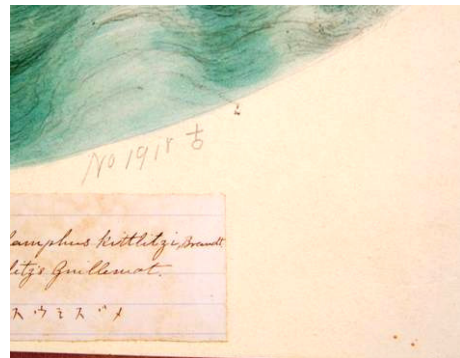 No 1918 古
lamphus kittlitzi, Brandt
litz's Guillemot.
スウミスヾメ